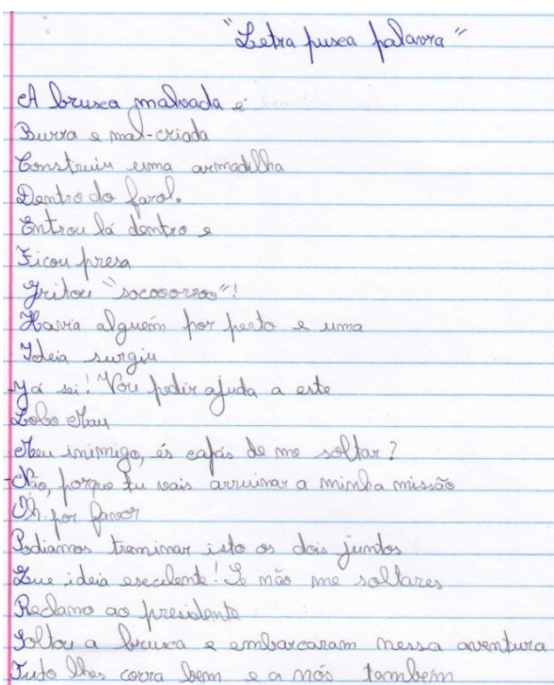 "Letra puxa palavra"
A bruxa malvada é
Burra e mal-criada
Construiu uma armadilha
Dentro do farol.
Entrou lá dentro e
Ficou presa
Gritou "socooorroo"!
Havia alguém por perto e uma
Ideia surgiu
-Já sei! Vou pedir ajuda a este
Lobo Mau
Meu inimigo, és capás de me soltar?
-Não, porque tu vais arruinar a minha missão
Oh por favor
Podiamos treminar isto os dois juntos
Que ideia esecilente! Se não me soltares
Reclamo ao presidente
Soltou a bruxa e embarcaram nessa aventura
Tudo lhes corra bem e a nós também